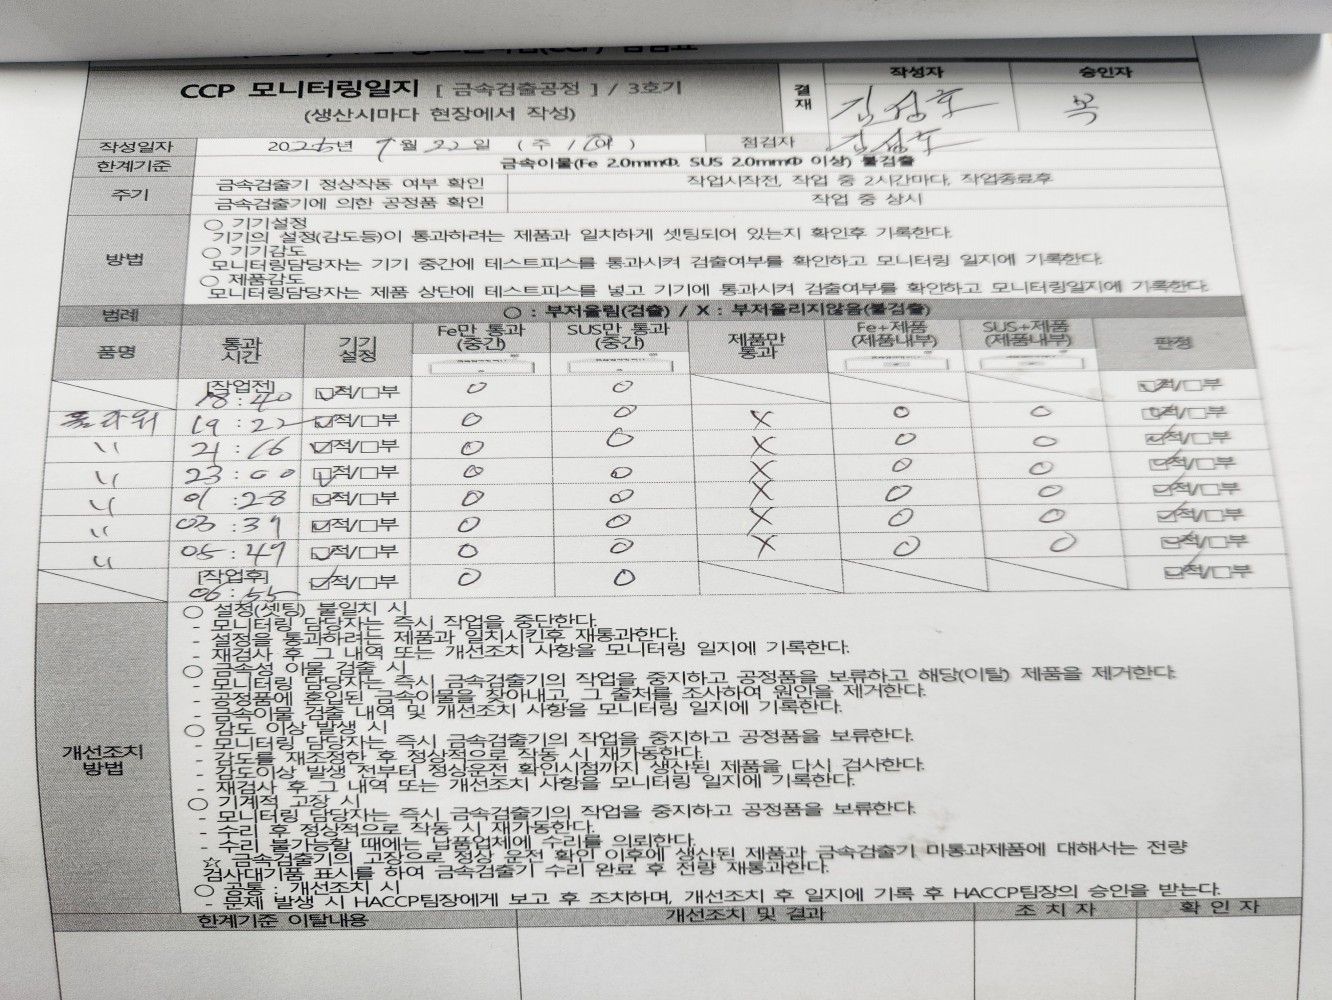 CCP 모니터링일지 [ 금속검출공정 ] / 3호기
(생산시마다 현장에서 작성)
결재
작성자
승인자
김성호
작성일자
2025년 9월 22일 ( 주 / 야 )
점검자
김성호
한계기준
금속이물(Fe 2.0mmΦ. SUS 2.0mmΦ 이상) 불검출
주기
금속검출기 정상작동 여부 확인
작업시작전, 작업 중 2시간마다, 작업종료후
금속검출기에 의한 공정품 확인
작업 중 상시
방법
○ 기기설정
기기의 설정(감도등)이 통과하려는 제품과 일치하게 셋팅되어 있는지 확인후 기록한다.
○ 기기감도
모니터링담당자는 기기 중간에 테스트피스를 통과시켜 검출여부를 확인하고 모니터링 일지에 기록한다.
○ 제품감도
모니터링담당자는 제품 상단에 테스트피스를 넣고 기기에 통과시켜 검출여부를 확인하고 모니터링일지에 기록한다.
범례
○ : 부저울림(검출) / X : 부저울리지않음(불검출)
품명
통과시간
기기설정
Fe만 통과 (중간)
SUS만 통과 (중간)
제품만 통과
Fe+제품 (제품내부)
SUS+제품 (제품내부)
판정
[작업전] 18:40 ☑적/□부 ○ ○ ☑적/□부
플라워 19:22 ☑적/□부 ○ ○ X ○ ○ ☑적/□부
〃 21:16 ☑적/□부 ○ ○ X ○ ○ ☑적/□부
〃 23:00 ☑적/□부 ○ ○ X ○ ○ ☑적/□부
〃 01:28 ☑적/□부 ○ ○ X ○ ○ ☑적/□부
〃 03:39 ☑적/□부 ○ ○ X ○ ○ ☑적/□부
〃 05:49 ☑적/□부 ○ ○ X ○ ○ ☑적/□부
[작업후] 06:55 ☑적/□부 ○ ○ ☑적/□부
개선조치 방법
○ 설정(셋팅) 불일치 시
- 모니터링 담당자는 즉시 작업을 중단한다.
- 설정을 통과하려는 제품과 일치시킨후 재통과한다.
- 재검사 후 그 내역 또는 개선조치 사항을 모니터링 일지에 기록한다.
○ 금속성 이물 검출 시
- 모니터링 담당자는 즉시 금속검출기의 작업을 중지하고 공정품을 보류하고 해당(이탈) 제품을 제거한다.
- 공정품에 혼입된 금속이물을 찾아내고, 그 출처를 조사하여 원인을 제거한다.
- 금속이물 검출 내역 및 개선조치 사항을 모니터링 일지에 기록한다.
○ 감도 이상 발생 시
- 모니터링 담당자는 즉시 금속검출기의 작업을 중지하고 공정품을 보류한다.
- 감도를 재조정한 후 정상적으로 작동 시 재가동한다.
- 감도이상 발생 전부터 정상운전 확인시점까지 생산된 제품을 다시 검사한다.
- 재검사 후 그 내역 또는 개선조치 사항을 모니터링 일지에 기록한다.
○ 기계적 고장 시
- 모니터링 담당자는 즉시 금속검출기의 작업을 중지하고 공정품을 보류한다.
- 수리 후 정상적으로 작동 시 재가동한다.
- 수리 불가능할 때에는 납품업체에 수리를 의뢰한다.
☆ 금속검출기의 고장으로 정상 운전 확인 이후에 생산된 제품과 금속검출기 미통과제품에 대해서는 전량
검사대기품 표시를 하여 금속검출기 수리 완료 후 전량 재통과한다.
○ 공통 : 개선조치 시
- 문제 발생 시 HACCP팀장에게 보고 후 조치하며, 개선조치 후 일지에 기록 후 HACCP팀장의 승인을 받는다.
한계기준 이탈내용
개선조치 및 결과
조 치 자
확 인 자